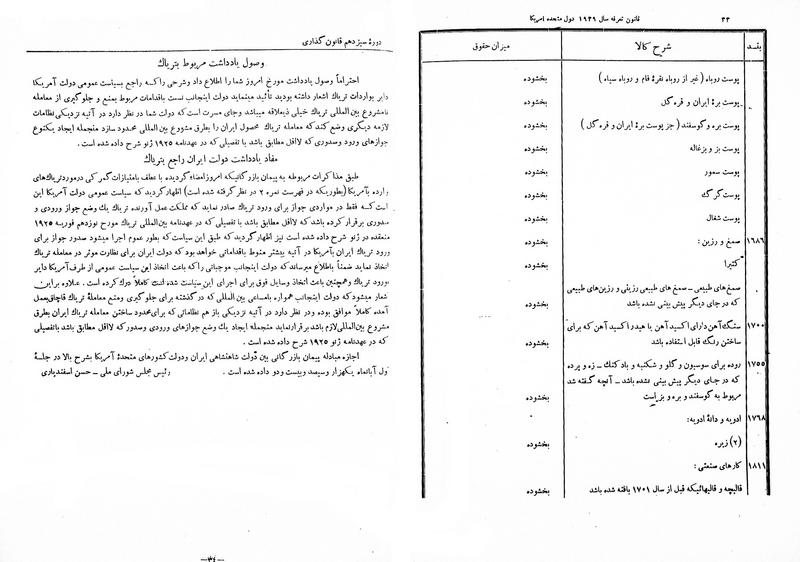 ۳۳
قانون تعرفه سال ۱۹۲۹ دول متحده امریکا
بقـد
شرح کالا
میزان حقوق
پوست روباه ( غیر از روباه نقرهٔ فام و روباه سیاه )
بخشوده
پوست برهٔ ایران و قره گل
بخشوده
پوست بره و گوسفند ( جز پوست برهٔ ایران و قره گل )
بخشوده
پوست بز و بزغاله
بخشوده
پوست سمور
بخشوده
پوست گرگ
بخشوده
پوست شغال
بخشوده
۱۶۸۶
صمغ و رزین :
کتیرا
بخشوده
صمغ های طبیعی ــ صمغ های طبیعی رزینی و رزین‌های طبیعی
که در جای دیگر پیش بینی نشده باشد
بخشوده
۱۷۰۰
سنگ آهن دارای اکسید آهن یا هیدر اکسید آهن که برای
ساختن رنگ قابل استفاده باشد
بخشوده
۱۷۵۵
روده برای سوسیون و گلو و شکنبه و بادکنک ــ زه و پرده
که در جای دیگر پیش بینی نشده باشد ــ آنچه گفته شد
مربوط به گوسفند و بره و بز است
بخشوده
۱۷۶۸
ادویه و دانهٔ ادویه:
(۲) زیره
بخشوده
۱۸۱۱
کارهای صنعتی :
قالیچه و قالیهائیکه قبل از سال ۱۷۰۱ بافته شده باشد
بخشوده
دورهٔ سیزدهم قانون گذاری
وصول یادداشت مربوط بتریاک
احتراماً وصول یادداشت مورخ امروز شما را اطلاع داد وشرحی را که راجع بسیاست عمومی دولت آمریکا
دایر بواردات تریاک اشعار داشته بودید تأئید مینماید دولت اینجانب نسبت باقدامات مربوط بمنع و جلوگیری از معامله
نامشروع بین‌المللی تریاک خیلی ذیعلاقه میباشد وجای مسرت است که دولت شما در نظر دارد در آتیه نزدیکی نظامات
لازمه دیگری وضع کند که معامله تریاک محصول ایران را بطرق مشروع بین المللی محدود سازد منجمله ایجاد یکنوع
جوازهای ورود وصدوری که لااقل مطابق باشد با تفصیلی که در عهدنامه ۱۹۲۵ ژنو شرح داده شده است .
مفاد یادداشت دولت ایران راجع بتریاک
طبق مذاکرات مربوطه به پیمان بازرگانیکه امروز امضاء گردیده با عطف بامتیازات گمرکی درمورد تریاک‌های
وارده بآمریکا (بطوریکه در فهرست نمره ۲ در نظر گرفته شده است) اظهار گردید که سیاست عمومی دولت آمریکا این
است که فقط در مواردی جواز برای ورود تریاک صادر نماید که مملکت عمل آورنده تریاک یک وضع جواز ورودی و
صدوری برقرار کرده باشد که لااقل مطابق باشد با تفصیلی که در عهدنامه بین‌المللی تریاک مورخ نوزدهم فوریه ۱۹۲۵
منعقده در ژنو شرح داده شده است نیز اظهار گردید که طبق این سیاست که بطور عموم اجرا میشود صدور جواز برای
ورود تریاک ایران بآمریکا در آتیه بیشتر منوط باقداماتی خواهد بود که دولت ایران برای نظارت موثر در معامله تریاک
اتخاذ نماید ضمناً باطلاع میرساند که دولت اینجانب موجباتی را که باعث اتخاذ این سیاست عمومی از طرف آمریکا دایر
بورود تریاک وهمچنین باعث اتخاذ وسایل فوق برای اجرای این سیاست شده است کاملاً درک کرده است . علاوه براین
اشعار میشود که دولت اینجانب همواره بامساعی بین المللی که در گذشته برای جلوگیری ومنع معاملهٔ تریاک قاچاق بعمل
آمده کاملاً موافق بوده و در نظر دارد در آتیه نزدیکی باز هم نظاماتی که برای محدود ساختن معامله تریاک ایران بطرق
مشروع بین‌المللی لازم باشد برقرار نماید منجمله ایجاد یک وضع جوازهای ورودی وصدور که لااقل مطابق باشد باتفصیلی
که در عهدنامه ژنو ۱۹۲۵ شرح داده شده است .
اجازه مبادله پیمان بازرگانی بین دولت شاهنشاهی ایران ودولت کشورهای متحدهٔ آمریکا بشرح بالا در جلسهٔ
اول آبانماه یکهزار وسیصد وبیست ودو داده شده است .
رئیس مجلس شورای ملی ــ حسن اسفندیاری
ــ۳٤ــ